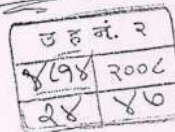 उ ह नं. २
४८१४ २००८
२४ ४७